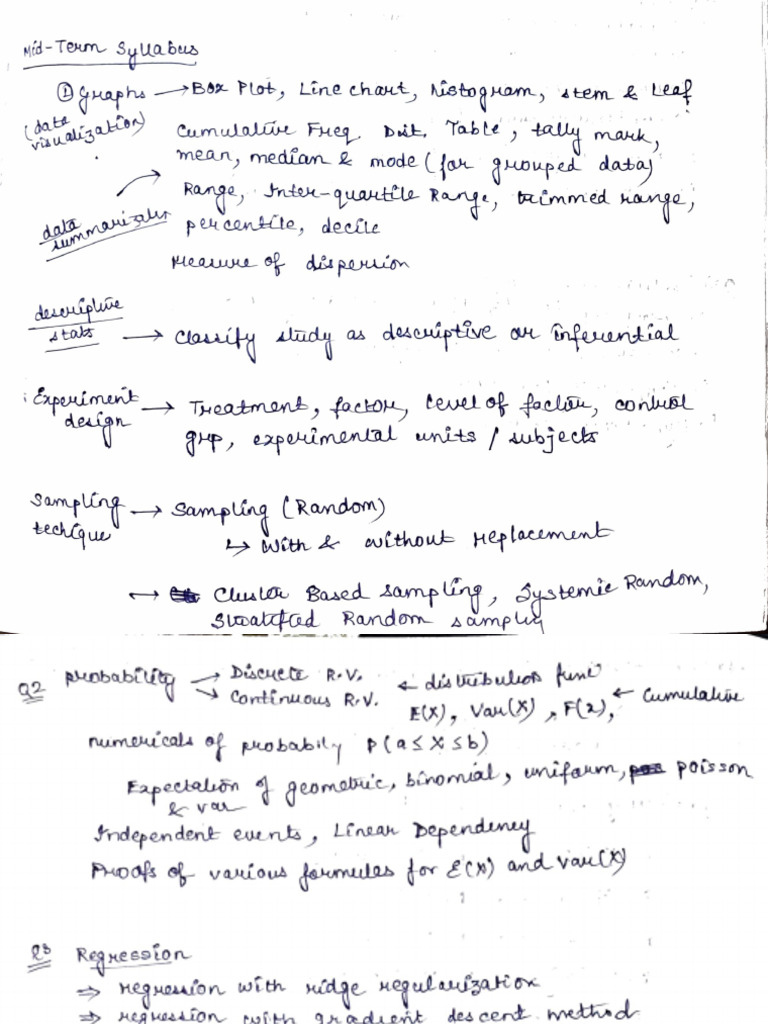 Mid-Term Syllabus
① Graphs → Box Plot, Line chart, histogram, stem & Leaf
(data visualization)
Cumulative Freq. Dist. Table, tally mark,
mean, median & mode (for grouped data)
Range, Inter-quartile Range, trimmed range,
data summarization
percentile, decile
Measure of dispersion
descriptive stats → Classify study as descriptive or inferential
Experiment design → Treatment, factor, level of factor, control
grp, experimental units / subjects
Sampling techique → Sampling (Random)
↳ With & without replacement
↔ Cluster Based sampling, Systemic Random,
Stratified Random samplig
Q2 probability → Discrete R.V. ← distribution func
→ Continuous R.V. E(X), Var(X), F(x), ← Cumulative
numericals of probabily P(a ≤ X ≤ b)
Expectation of geometric, binomial, uniform, poisson
& var
Independent events, Linear Dependency
Proofs of various formulas for E(x) and var(X)
Q3 Regression
⇒ regression with ridge regularization
⇒ regression with gradient descent method